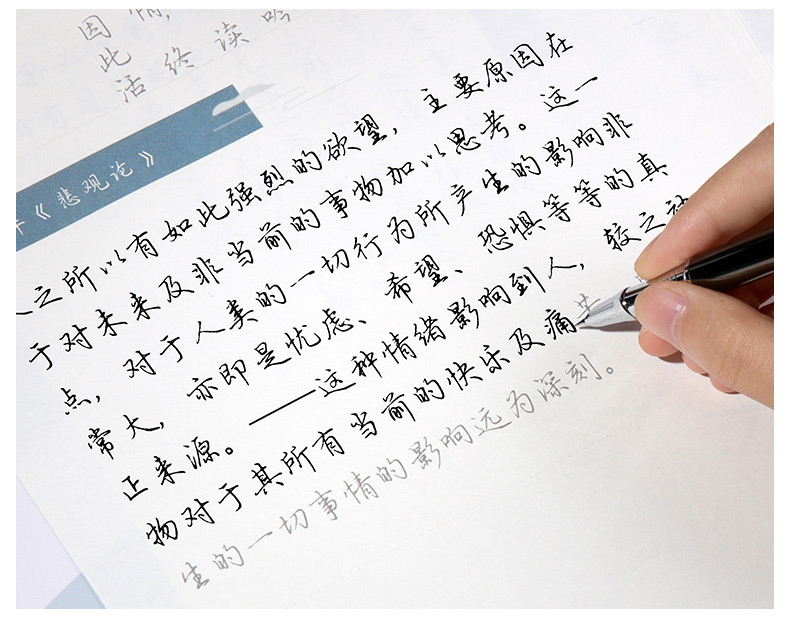 因情，
此
活终读吟
《悲观论》
人之所以有如此强烈的欲望，主要原因在
于对未来及非当前的事物加以思考。这一
点，对于人类的一切行为所产生的影响非
常大，亦即是忧虑、希望、恐惧等等的真
正来源。——这种情绪影响到人，较之动
物对于其所有当前的快乐及痛
生的一切事情的影响远为深刻。